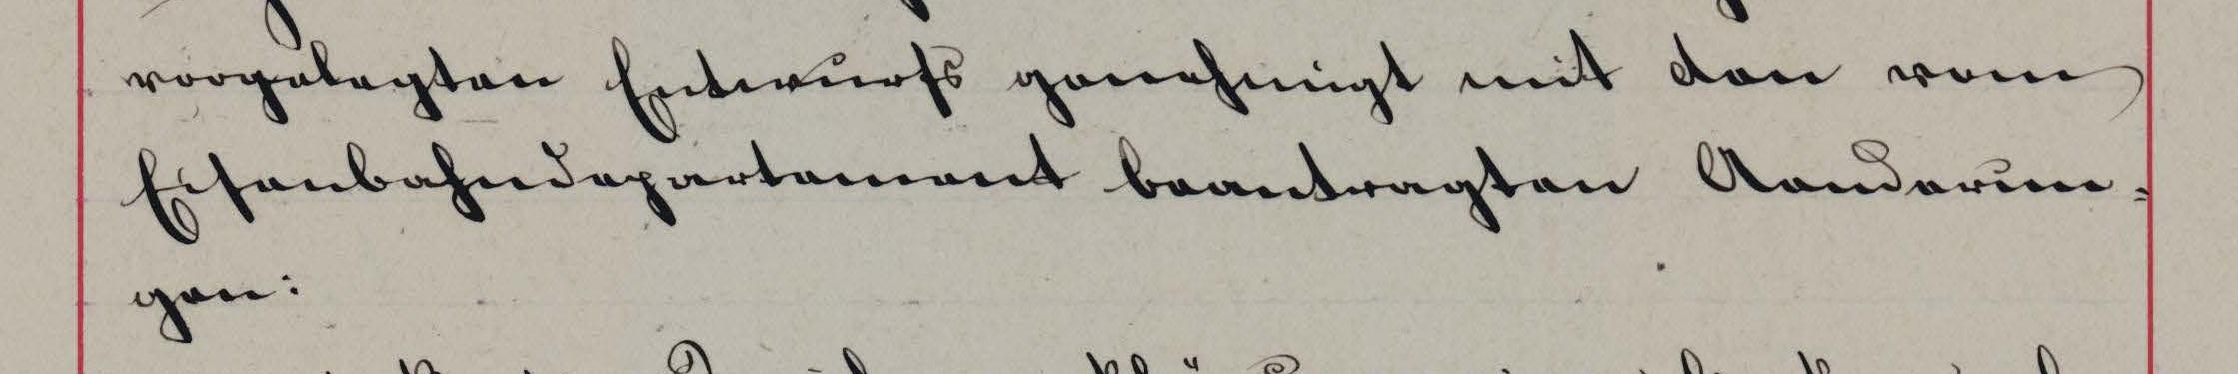 vorgelegten Entwurfs genehmigt mit den vom
Eisenbahndepartement beantragten Aenderun-
gen: